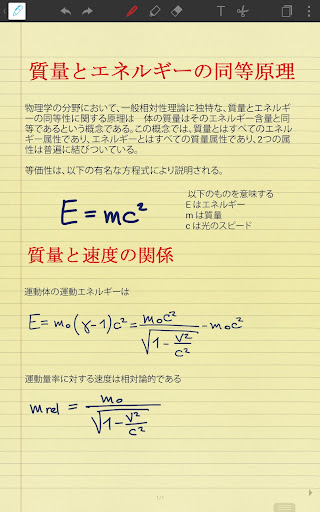 質量とエネルギーの同等原理
物理学の分野において、一般相対性理論に独特な、質量とエネルギ
ーの同等性に関する原理は　体の質量はそのエネルギー含量と同
等であるという概念である。この概念では、質量とはすべてのエネル
ギー属性であり、エネルギーとはすべての質量属性であり、2つの属
性は普遍に結びついている。
等価性は、以下の有名な方程式により説明される。
E = mc²
以下のものを意味する
E はエネルギー
m は質量
c は光のスピード
質量と速度の関係
運動体の運動エネルギーは
E = m₀(γ-1)c² = m₀c² / √(1 - v²/c²) - m₀c²
運動量率に対する速度は相対論的である
m rel = m₀ / √(1 - v²/c²)
1/1